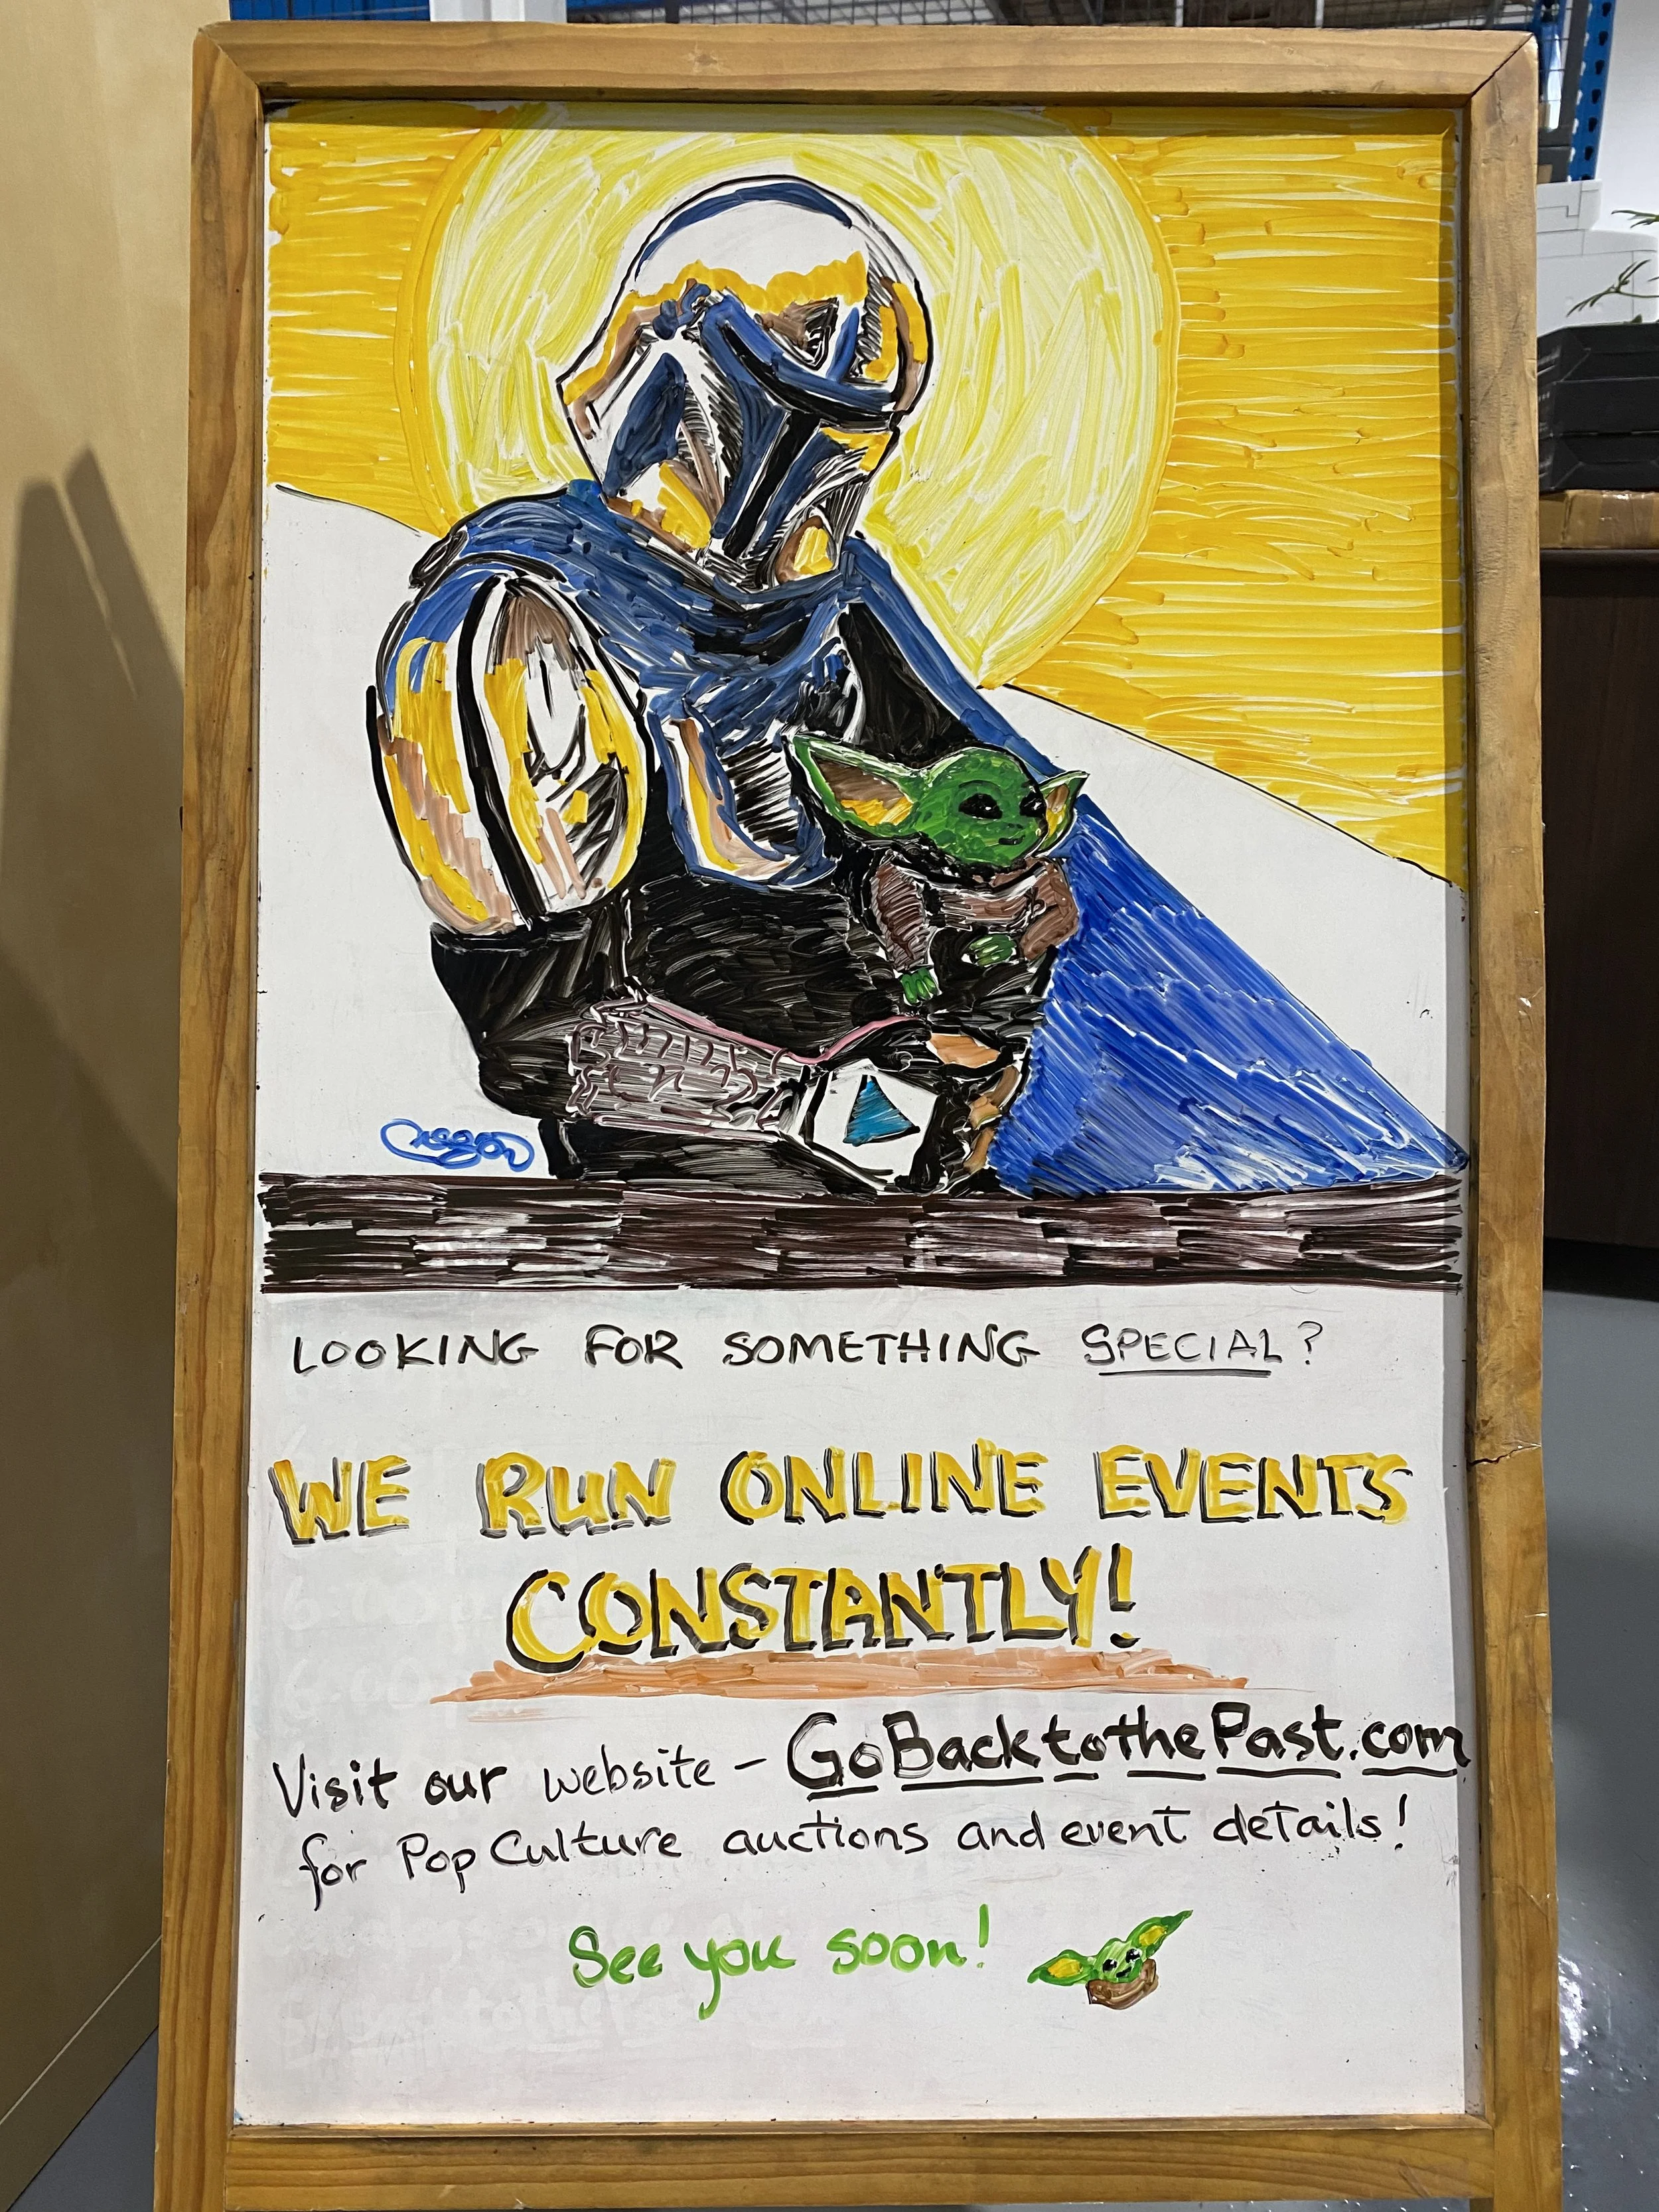 LOOKING FOR SOMETHING SPECIAL?
WE RUN ONLINE EVENTS
CONSTANTLY!
Visit our website - GoBacktothePast.com
for Pop Culture auctions and event details!
See you soon!